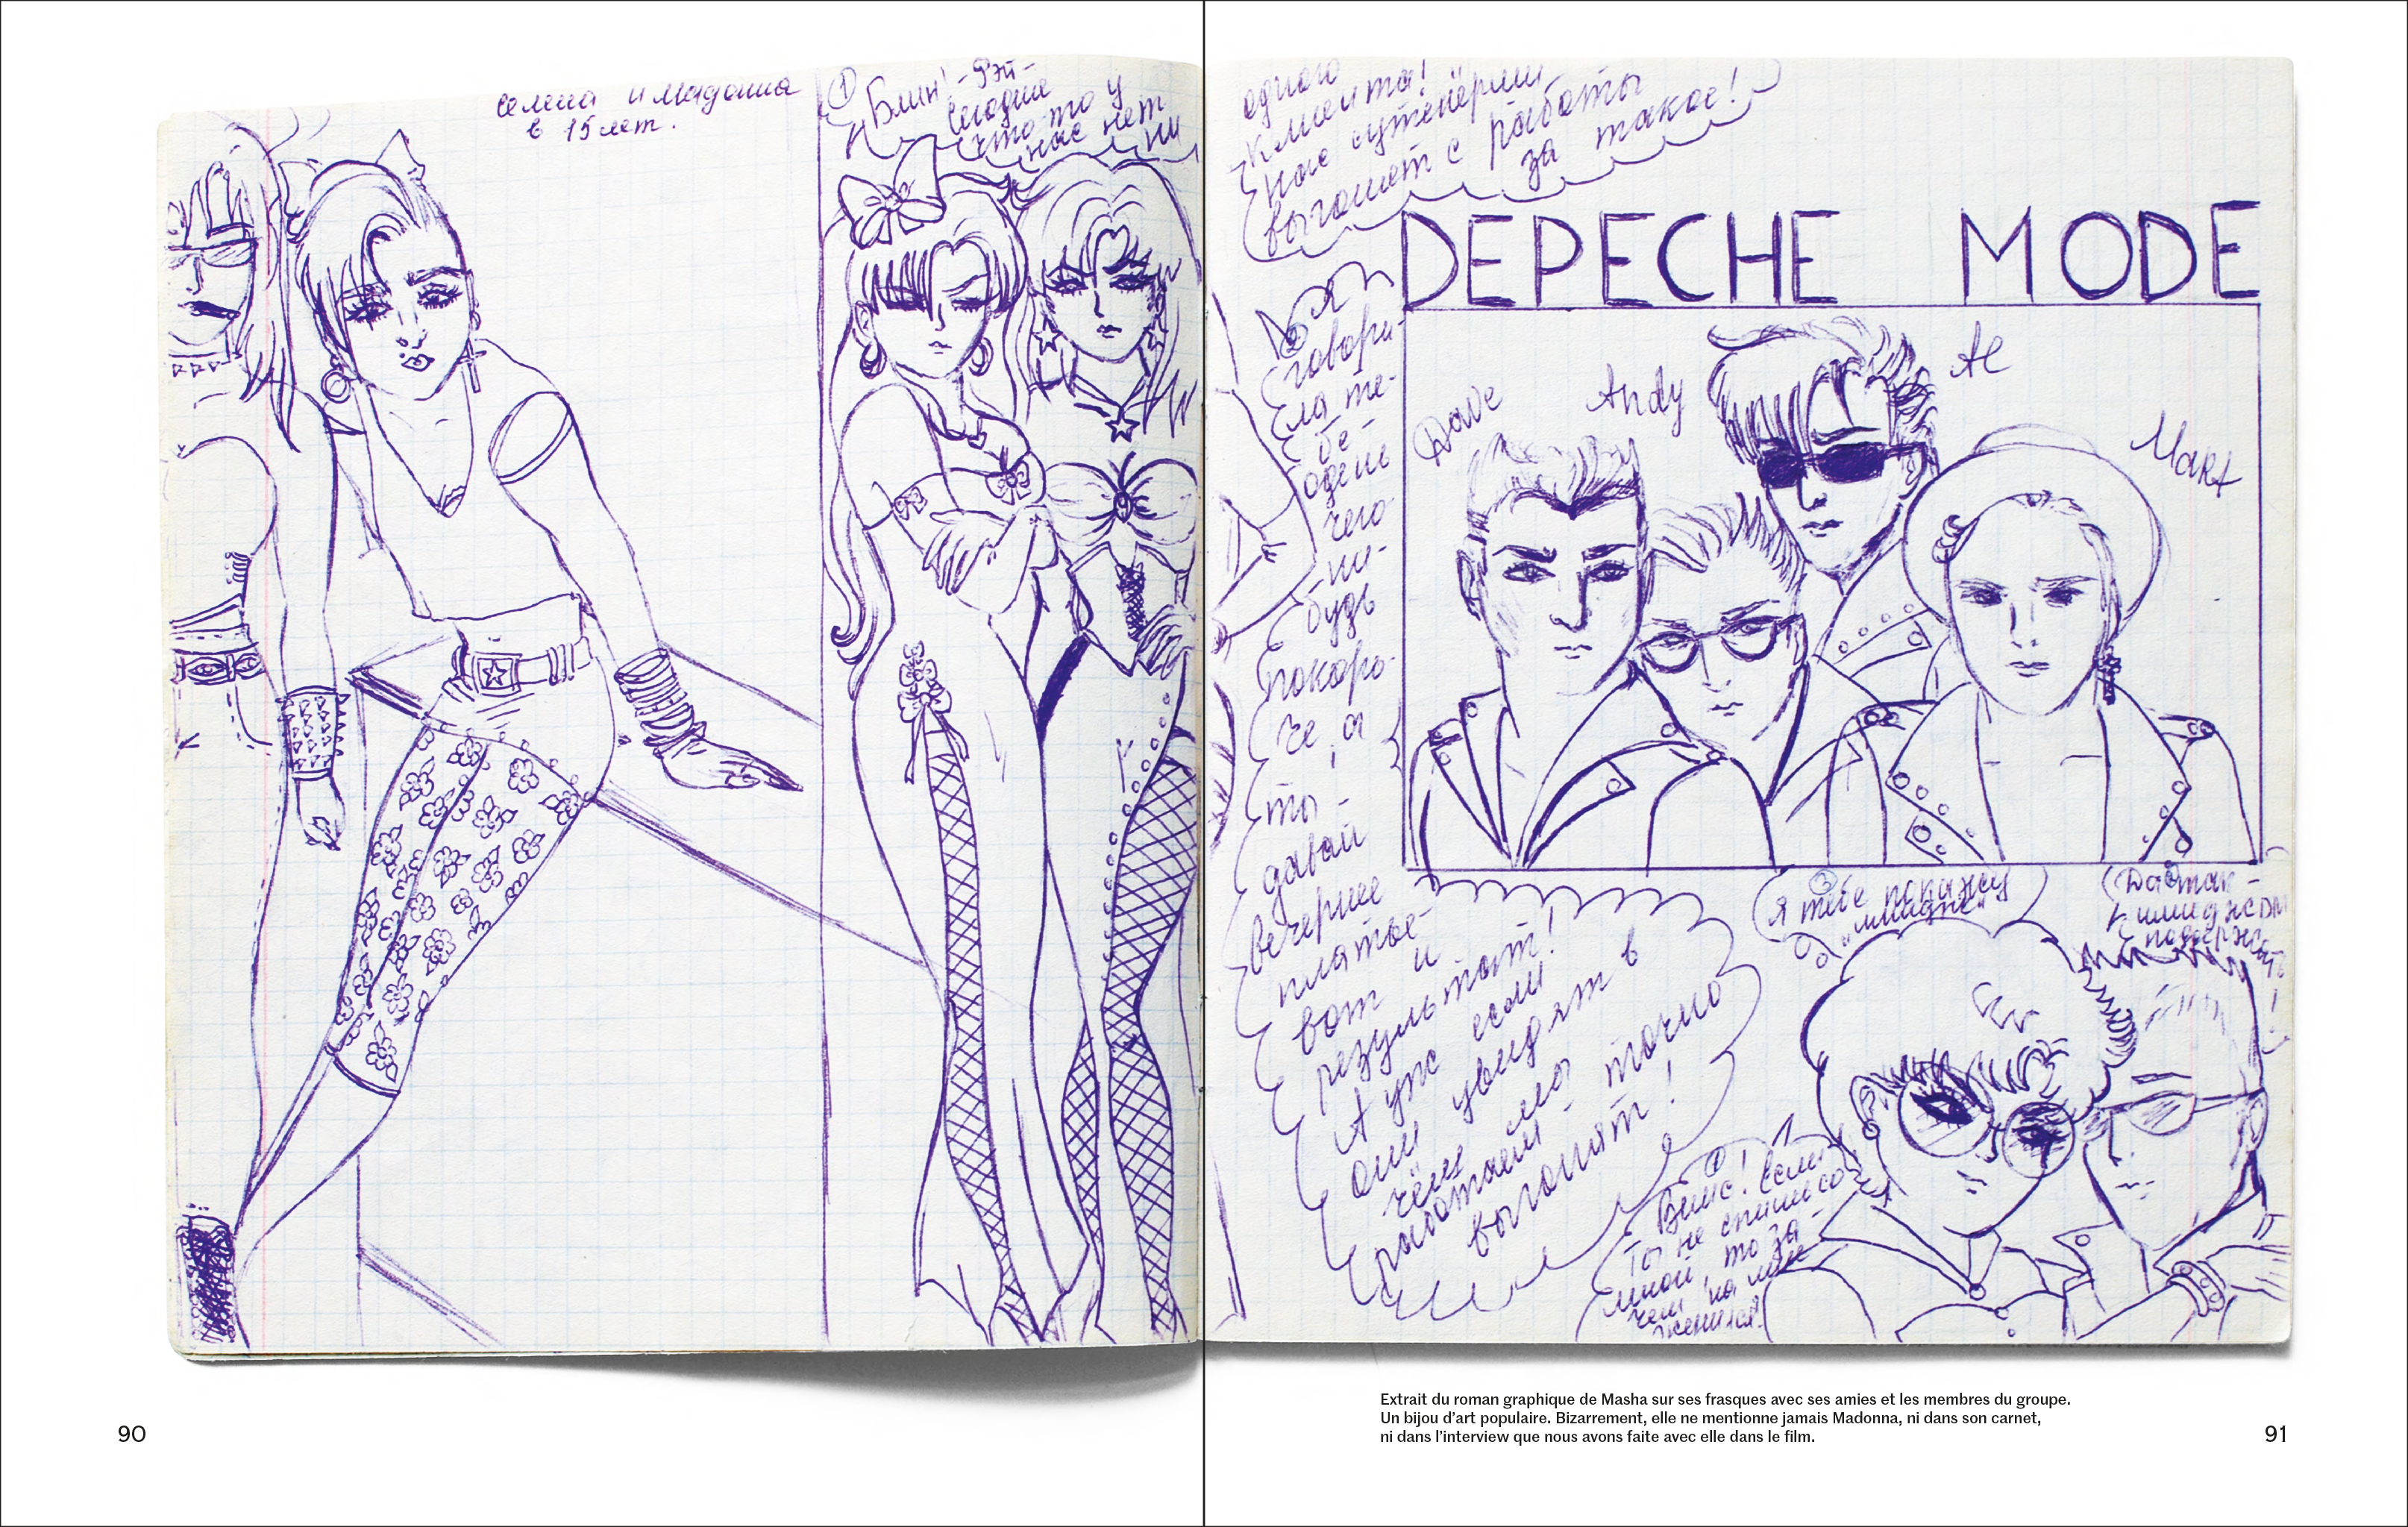 Селена и Мадонна
в 15 лет.
①
Блин! - Рэй-
сегодня
что-то у
нас нет
ни
одного
клиента!
нас сутенёрши
выгонят с работы
за такое!
DEPECHE MODE
Dave
Andy
Al
Mart
②
говори-
ла те-
бе -
одень
чего-
ни-
будь
покоро-
че, а
ты -
давай
вечернее
платье -
вот и
результат!
А уж если
они увидят в
чём мы
работаем - точно
выгонят!
③
Я тебе покажу
Да так -
имидж
①
- Винс! Если
ты не спишь со
мной, то за-
чем на мне
женился?
Extrait du roman graphique de Masha sur ses frasques avec ses amies et les membres du groupe.
Un bijou d’art populaire. Bizarrement, elle ne mentionne jamais Madonna, ni dans son carnet,
ni dans l’interview que nous avons faite avec elle dans le film.
90
91